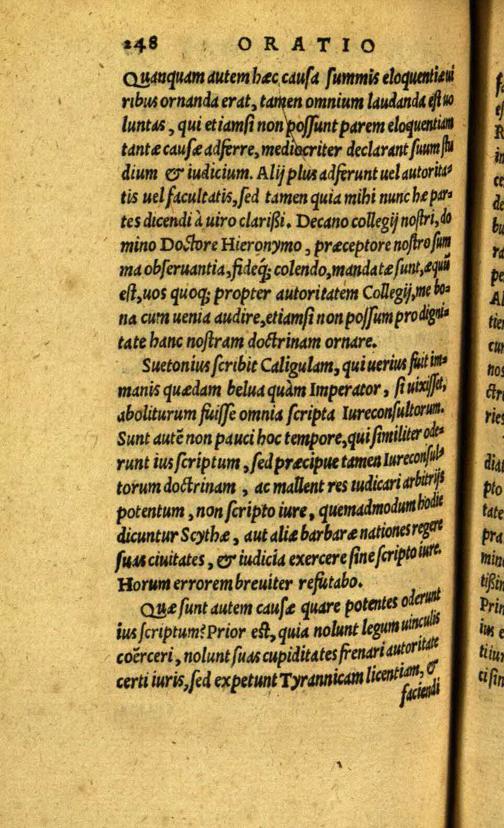 248 ORATIO
Quanquam autem hæc causa summis eloquentiæ ui
ribus ornanda erat, tamen omnium laudanda est uo
luntas, qui etiamsi non possunt parem eloquentiam
tantæ causæ adferre, mediocriter declarant suum stu
dium & iudicium. Alij plus adferunt uel autorita-
tis uel facultatis, sed tamen quia mihi nunc hę par-
tes dicendi à uiro clariss. Decano collegij nostri, do
mino Doctore Hieronymo, præceptore nostro sum
ma obseruantia, fideq́; colendo, mandatæ sunt, æquū
est, uos quoq; propter autoritatem Collegij, me bo-
na cum uenia audire, etiamsi non possum pro digni-
tate hanc nostram doctrinam ornare.
Suetonius scribit Caligulam, qui uerius fuit im-
manis quædam belua quàm Imperator, si uixisset,
aboliturum fuisse omnia scripta Iureconsultorum.
Sunt autē non pauci hoc tempore, qui similiter ode-
runt ius scriptum, sed præcipue tamen Iureconsul-
torum doctrinam, ac mallent res iudicari arbitrijs
potentum, non scripto iure, quemadmodum hodie
dicuntur Scythæ, aut aliæ barbaræ nationes regere
suas ciuitates, & iudicia exercere sine scripto iure.
Horum errorem breuiter refutabo.
Quæ sunt autem causæ quare potentes oderunt
ius scriptum? Prior est, quia nolunt legum uinculis
coërceri, nolunt suas cupiditates frenari autoritate
certi iuris, sed expetunt Tyrannicam licentiam, &
faciendi